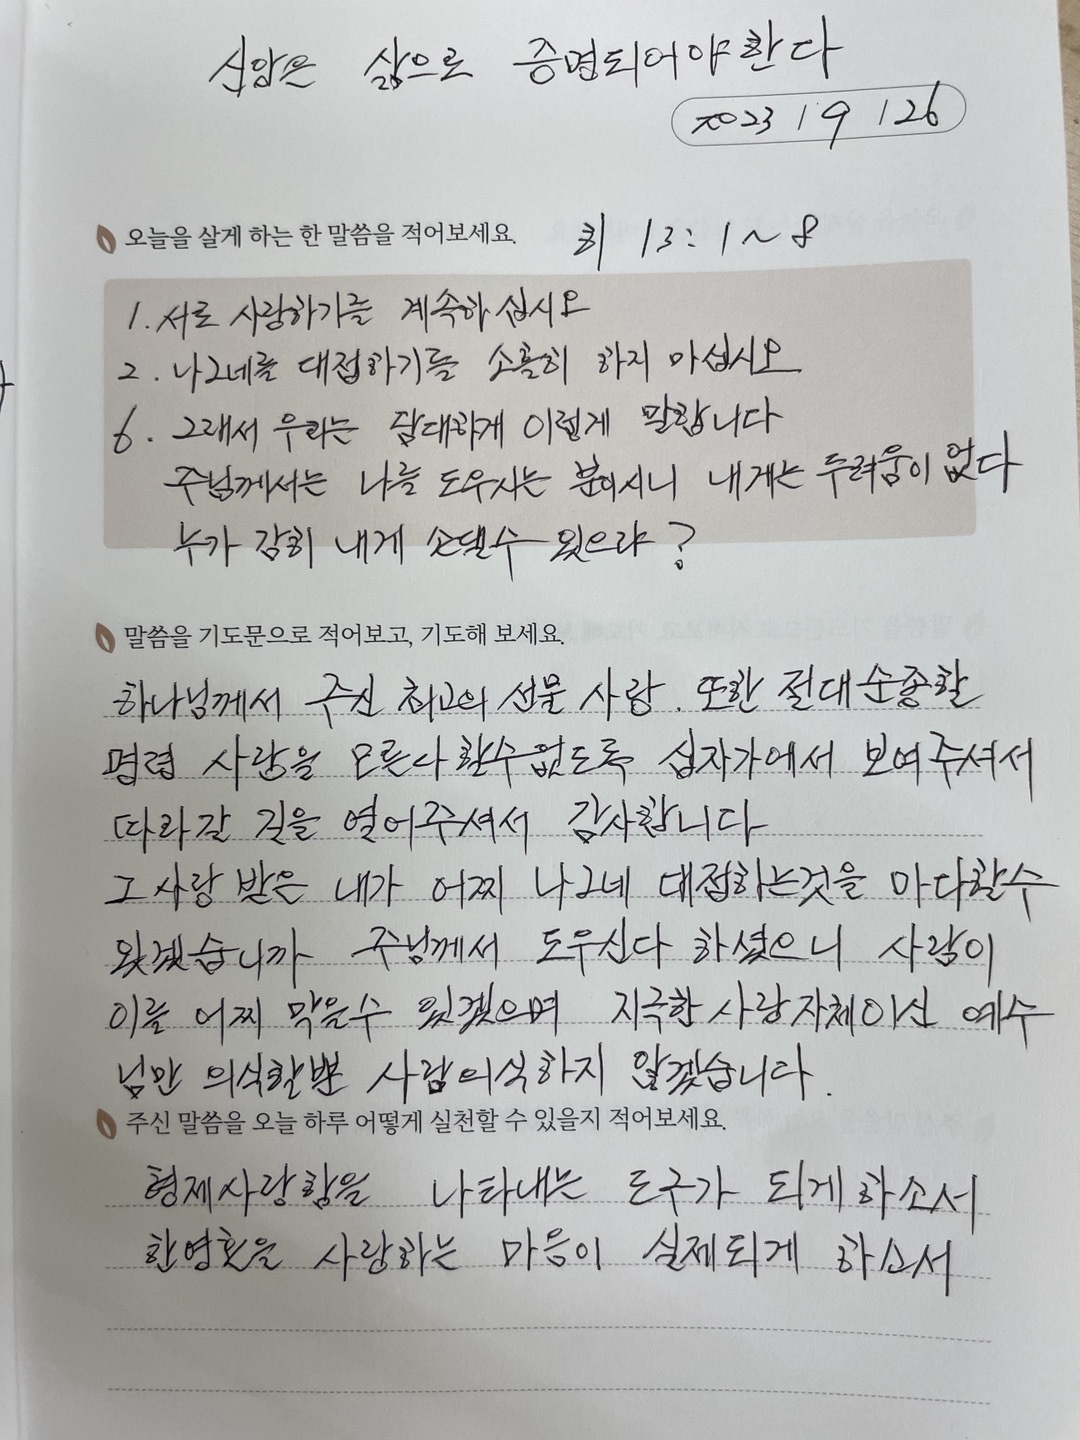 신앙은 삶으로 증명되어야한다
2023 / 9 / 26
오늘을 살게 하는 한 말씀을 적어보세요. 히 13:1~8
1. 서로 사랑하기를 계속하십시오
2. 나그네를 대접하기를 소홀히 하지 마십시오
6. 그래서 우리는 담대하게 이렇게 말합니다
주님께서는 나를 도우시는 분이시니 내게는 두려움이 없다
누가 감히 내게 손댈수 있으랴?
말씀을 기도문으로 적어보고, 기도해 보세요.
하나님께서 주신 최고의 선물 사랑. 또한 절대순종할
명령 사랑을 모른다 할수없도록 십자가에서 보여주셔서
따라갈 길을 열어주셔서 감사합니다
그 사랑 받은 내가 어찌 나그네 대접하는것을 마다할수
있겠습니까 주님께서 도우신다 하셨으니 사람이
이를 어찌 막을수 있겠으며 지극한 사랑자체이신 예수
님만 의식할뿐 사람의식하지 않겠습니다.
주신 말씀을 오늘 하루 어떻게 실천할 수 있을지 적어보세요.
형제사랑함을 나타내는 도구가 되게하소서
한영혼을 사랑하는 마음이 실제되게 하소서